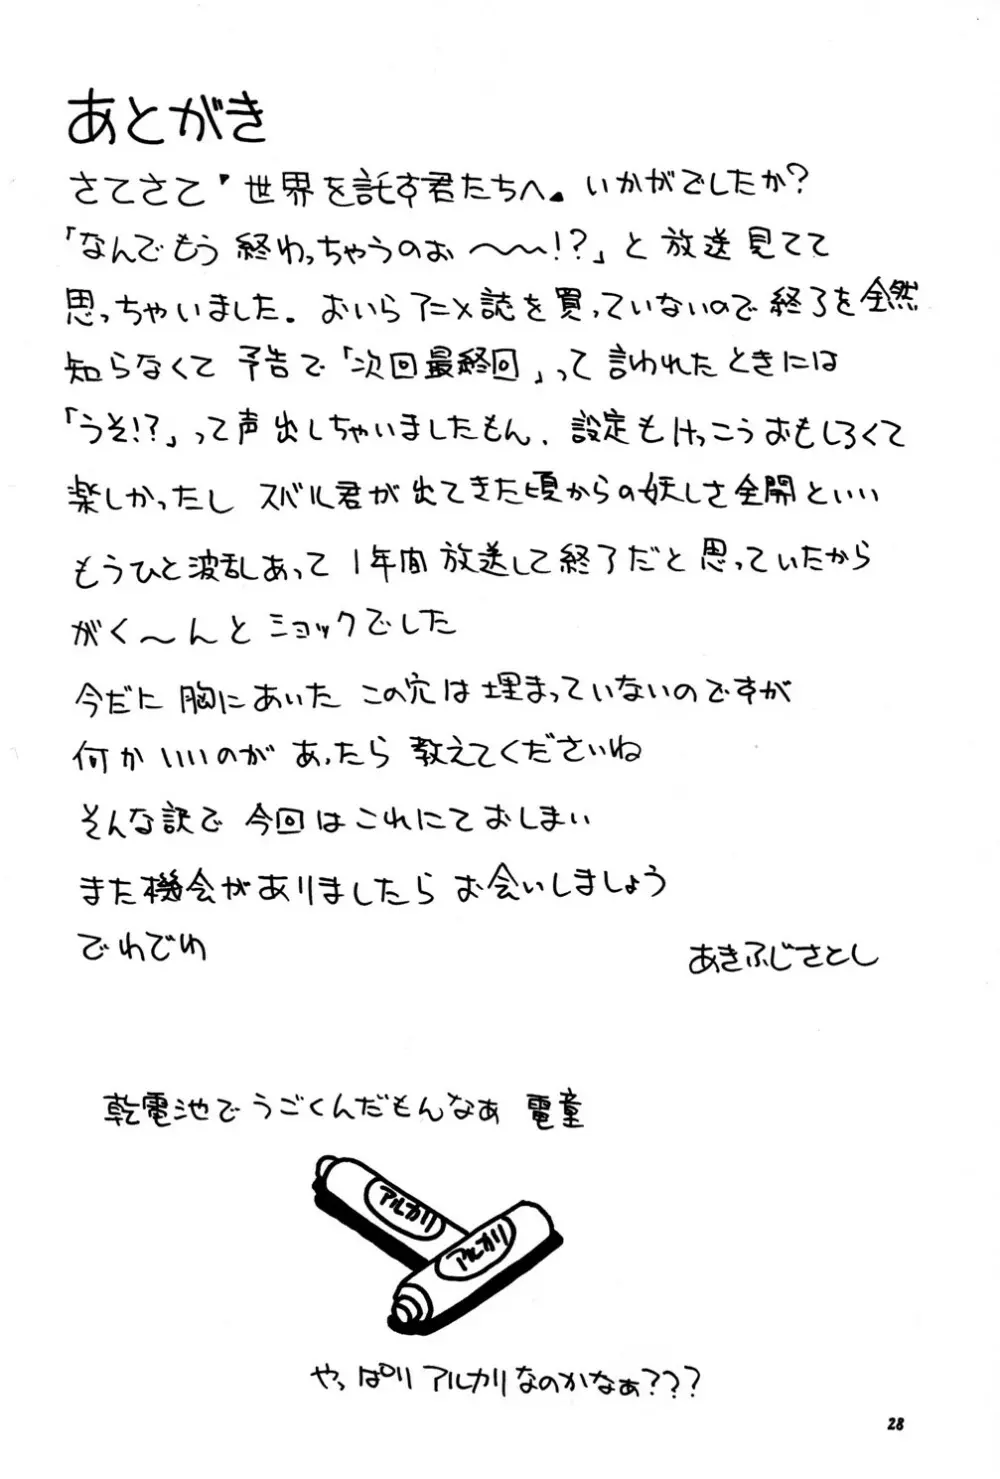 あとがき
さてさて『世界を託す君たちへ』いかがでしたか?
「なんでもう終わっちゃうのぉ〜〜!?」と放送見てて
思っちゃいました。おいらアニメ誌を買っていないので終了を全然
知らなくて予告で「次回最終回」って言われたときには
「うそ!?」って声出しちゃいましたもん、設定もけっこうおもしろくて
楽しかったし スバル君が出てきた頃からの妖しさ全開といい
もうひと波乱あって 1年間放送して終了だと思っていたから
がく〜んとショックでした
今だに胸にあいた この穴は埋まっていないのですが
何かいいのがあったら教えてくださいね
そんな訳で今回はこれにておしまい
また機会がありましたらお会いしましょう
でわでわ
あきふじさとし
乾電池でうごくんだもんなぁ 電童
アルカリ
アルカリ
やっぱりアルカリなのかなぁ???
28